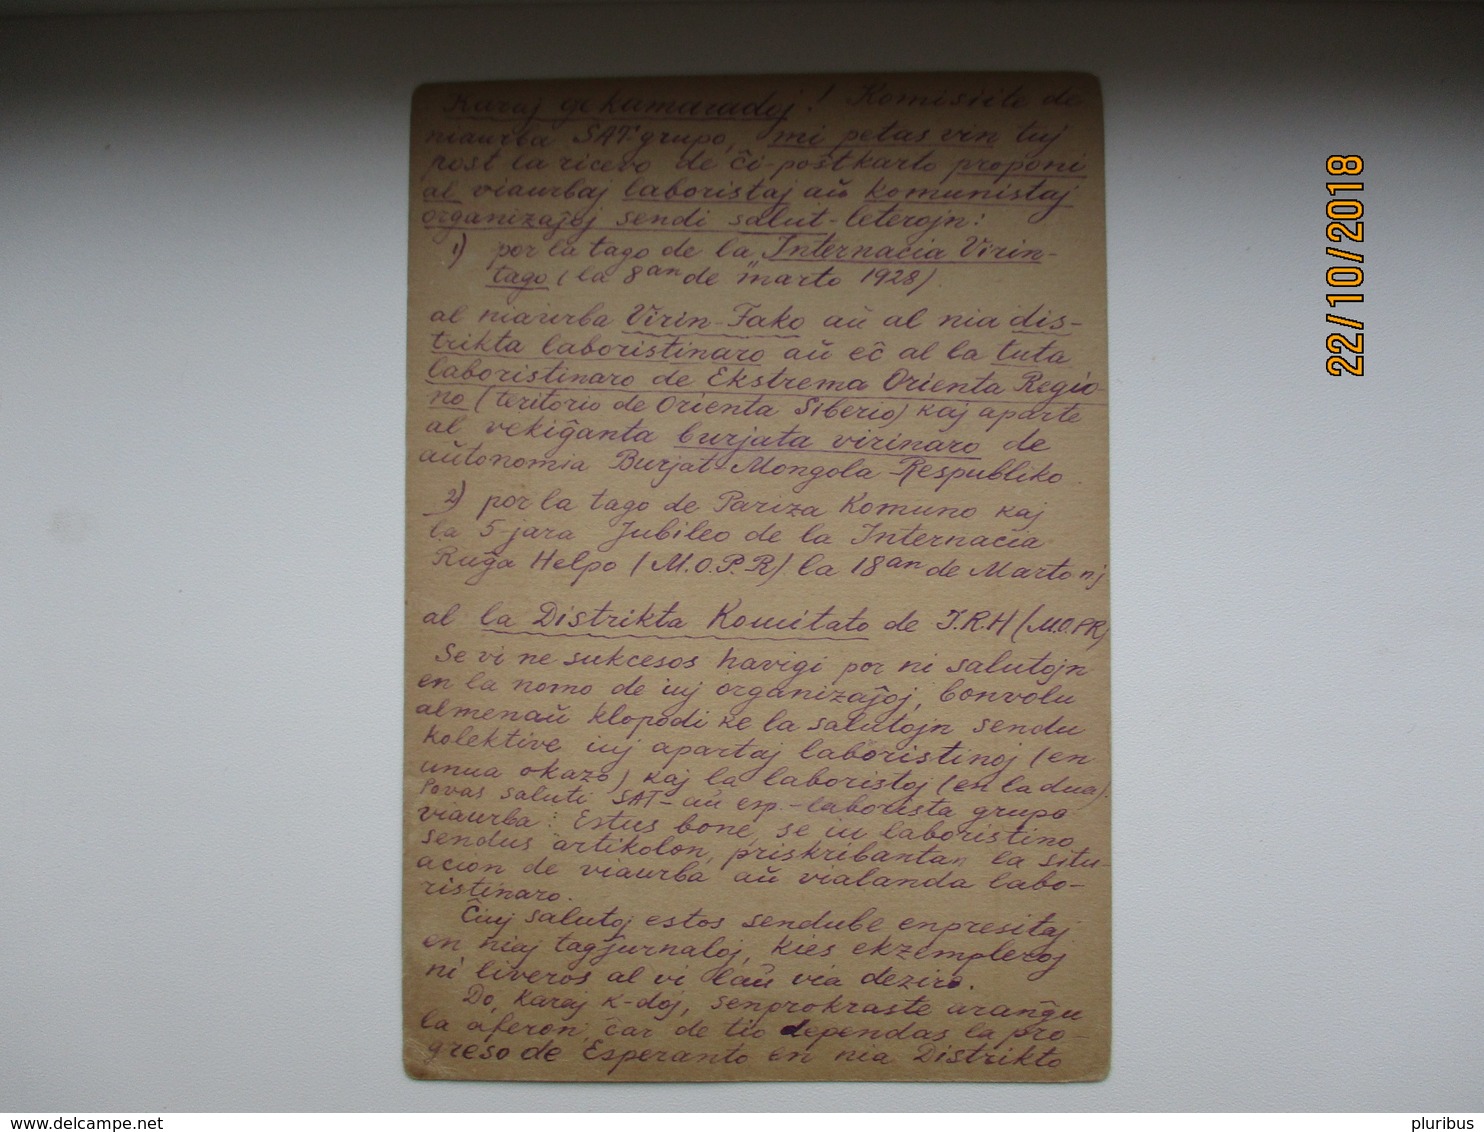 Karaj gekamaradoj! Komisiite de
niaurba SAT-grupo, mi petas vin tuj
post la ricevo de ĉi-poŝtkarto proponi
al viaurbaj laboristaj aŭ komunistaj
organizaĵoj sendi salut-leterojn:
1) por la tago de la „Internacia Virin-
tago (la 8an de marto 1928).
al niaurba Virin-Fako aŭ al nia dis-
trikta laboristinaro aŭ eĉ al la tuta
laboristinaro de Ekstrema Orienta Regio-
no (teritorio de Orienta Siberio) kaj aparte
al vekiĝanta burjata virinaro de
aŭtonomia Burjat-Mongola Respubliko.
2) por la tago de Pariza Komuno kaj
la 5-jara Jubileo de la Internacia
Ruĝa Helpo (M.O.P.R) la 18an de Marto nj
al la Distrikta Komitato de I.R.H (M.O.P.R)
Se vi ne sukcesos havigi por ni salutojn
en la nomo de iuj organizaĵoj, bonvolu
almenaŭ klopodi ke la salutojn sendu
kolektive iuj apartaj laboristinoj (en
unua okazo) kaj la laboristoj (en la dua).
Povas saluti SAT- aŭ esp.-laborista grupo
viaurba. Estus bone, se iu laboristino
sendus artikolon, priskribantan la situ-
acion de viaurba aŭ vialanda labo-
ristinaro.
Ĉiuj salutoj estos sendube enpresitaj
en niaj tagĵurnaloj, kies ekzemplerojn
ni liveros al vi laŭ via deziro.
Do, karaj k-doj, senprokraste aranĝu
la aferon, ĉar de tio dependas la pro-
greso de Esperanto en nia Distrikto
22/10/2018
www.delcampe.net
pluribus